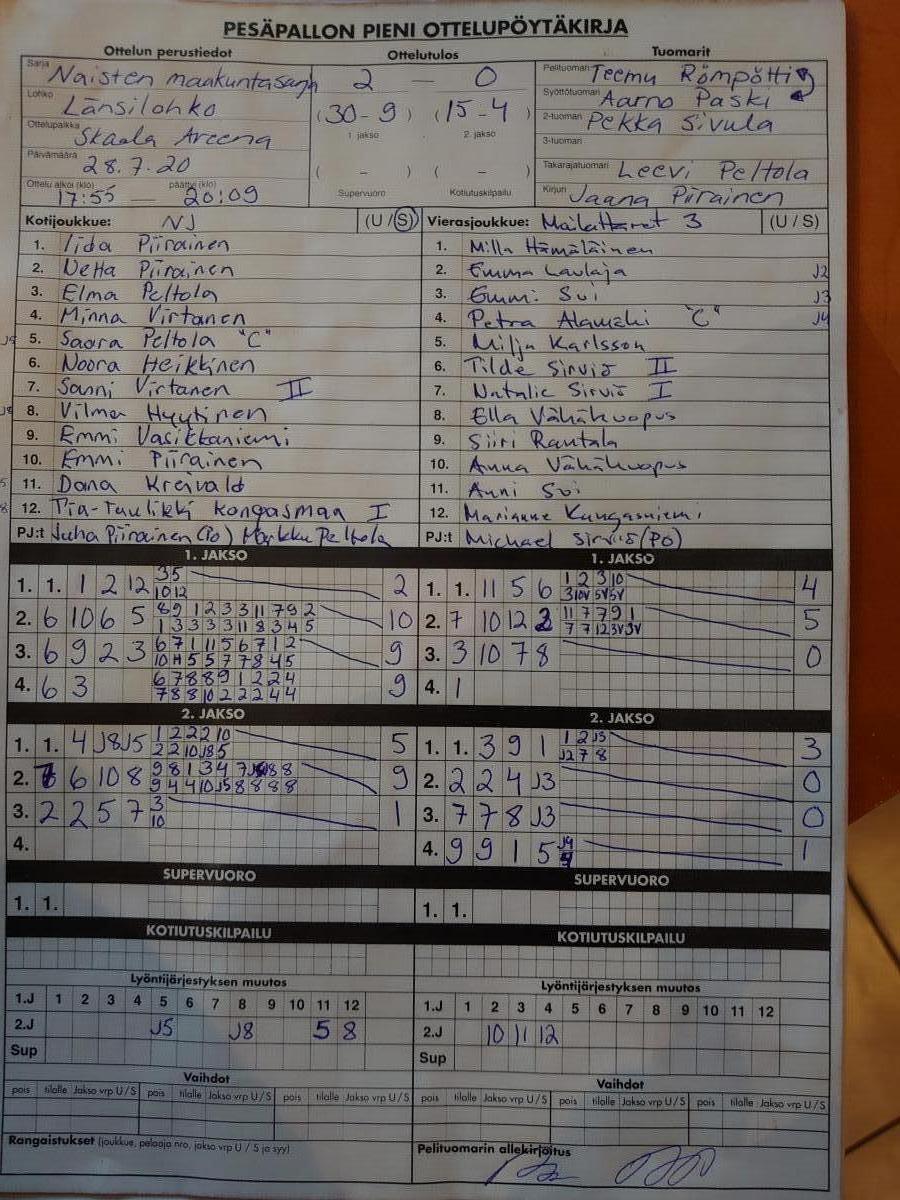 PESÄPALLON PIENI OTTELUPÖYTÄKIRJA
Ottelun perustiedot
Ottelutulos
Tuomarit
Sarja Naisten maakuntasarja
Lohko Länsilohko
Ottelupaikka Skaala Areena
Päivämäärä 28.7.20
Ottelu alkoi (klo) 17:55 — päättyi (klo) 20:09
2 — 0
(30-9) (15-4)
1. jakso 2. jakso
( - ) ( - )
Supervuoro Kotiutuskilpailu
Pelituomari Teemu Römpötti
Syöttötuomari Aarno Paski
2-tuomari Pekka Sivula
3-tuomari
Takarajatuomari Leevi Peltola
Kirjuri Jaana Piirainen
Kotijoukkue: NJ (U / S)
1. Iida Piirainen
2. Netta Piirainen
3. Elma Peltola
4. Minna Virtanen
5. Saara Peltola "C"
6. Noora Heikkinen
7. Sanni Virtanen II
8. Vilma Hyytinen
9. Emmi Vasikkaniemi
10. Emmi Piirainen
11. Dana Kreivald
12. Pia-Tuulikki Kongasmaa I
PJ:t Juha Piirainen (PO) Markku Peltola
Vierasjoukkue: Mailattaret 3 (U / S)
1. Milla Hämäläinen
2. Emma Laulaja J2
3. Emmi Soi J3
4. Petra Alamäki "C" J4
5. Milja Karlsson
6. Tilde Sirviö II
7. Natalie Sirviö I
8. Ella Vähäkuopus
9. Siiri Rantala
10. Anna Vähäkuopus
11. Anni Soi
12. Marianne Kangasniemi
PJ:t Michael Sirviö (PO)
1. JAKSO
1. 1. 1 2 12 35 2
10 12
2. 6 10 6 5 8 9 1 2 3 3 11 7 9 2 10
1 3 3 3 3 11 8 3 4 5
3. 6 9 2 3 6 7 1 11 5 6 7 1 2 9
10 11 5 5 7 7 8 4 5
4. 6 3 6 7 8 8 9 1 2 2 4 9
7 8 8 10 2 2 2 4 4
1. JAKSO
1. 1. 11 5 6 1 2 3 10 4
3 10V 5V 5V
2. 7 10 12 2 11 7 7 9 1 5
7 7 12 3V 3V
3. 3 10 7 8 0
4. 1
2. JAKSO
1. 1. 4 J8 J5 1 2 2 2 10 5
2 2 10 J8 5
2. 6 10 8 9 8 1 3 4 7 8 8 9
9 4 4 10 J5 8 8 8 8
3. 2 2 5 7 3 1
10
4.
2. JAKSO
1. 1. 3 9 1 1 2 J3 3
J2 7 8
2. 2 2 4 J3 0
3. 7 7 8 J3 0
4. 9 9 1 5 J4 1
SUPERVUORO
1. 1.
SUPERVUORO
1. 1.
KOTIUTUSKILPAILU
KOTIUTUSKILPAILU
Lyöntijärjestyksen muutos
1.J 1 2 3 4 5 6 7 8 9 10 11 12
2.J J5 J8 5 8
Sup
Lyöntijärjestyksen muutos
1.J 1 2 3 4 5 6 7 8 9 10 11 12
2.J 10 11 12
Sup
Vaihdot
pois tilalle Jakso vrp U / S pois tilalle Jakso vrp U / S pois tilalle Jakso vrp U / S
Vaihdot
pois tilalle Jakso vrp U / S pois tilalle Jakso vrp U / S pois tilalle Jakso vrp U / S
Rangaistukset (joukkue, pelaaja nro, jakso vrp U / S ja syy)
Pelituomarin allekirjoitus